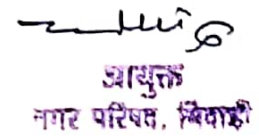 आयुक्त
नगर परिषद, भिवाड़ी